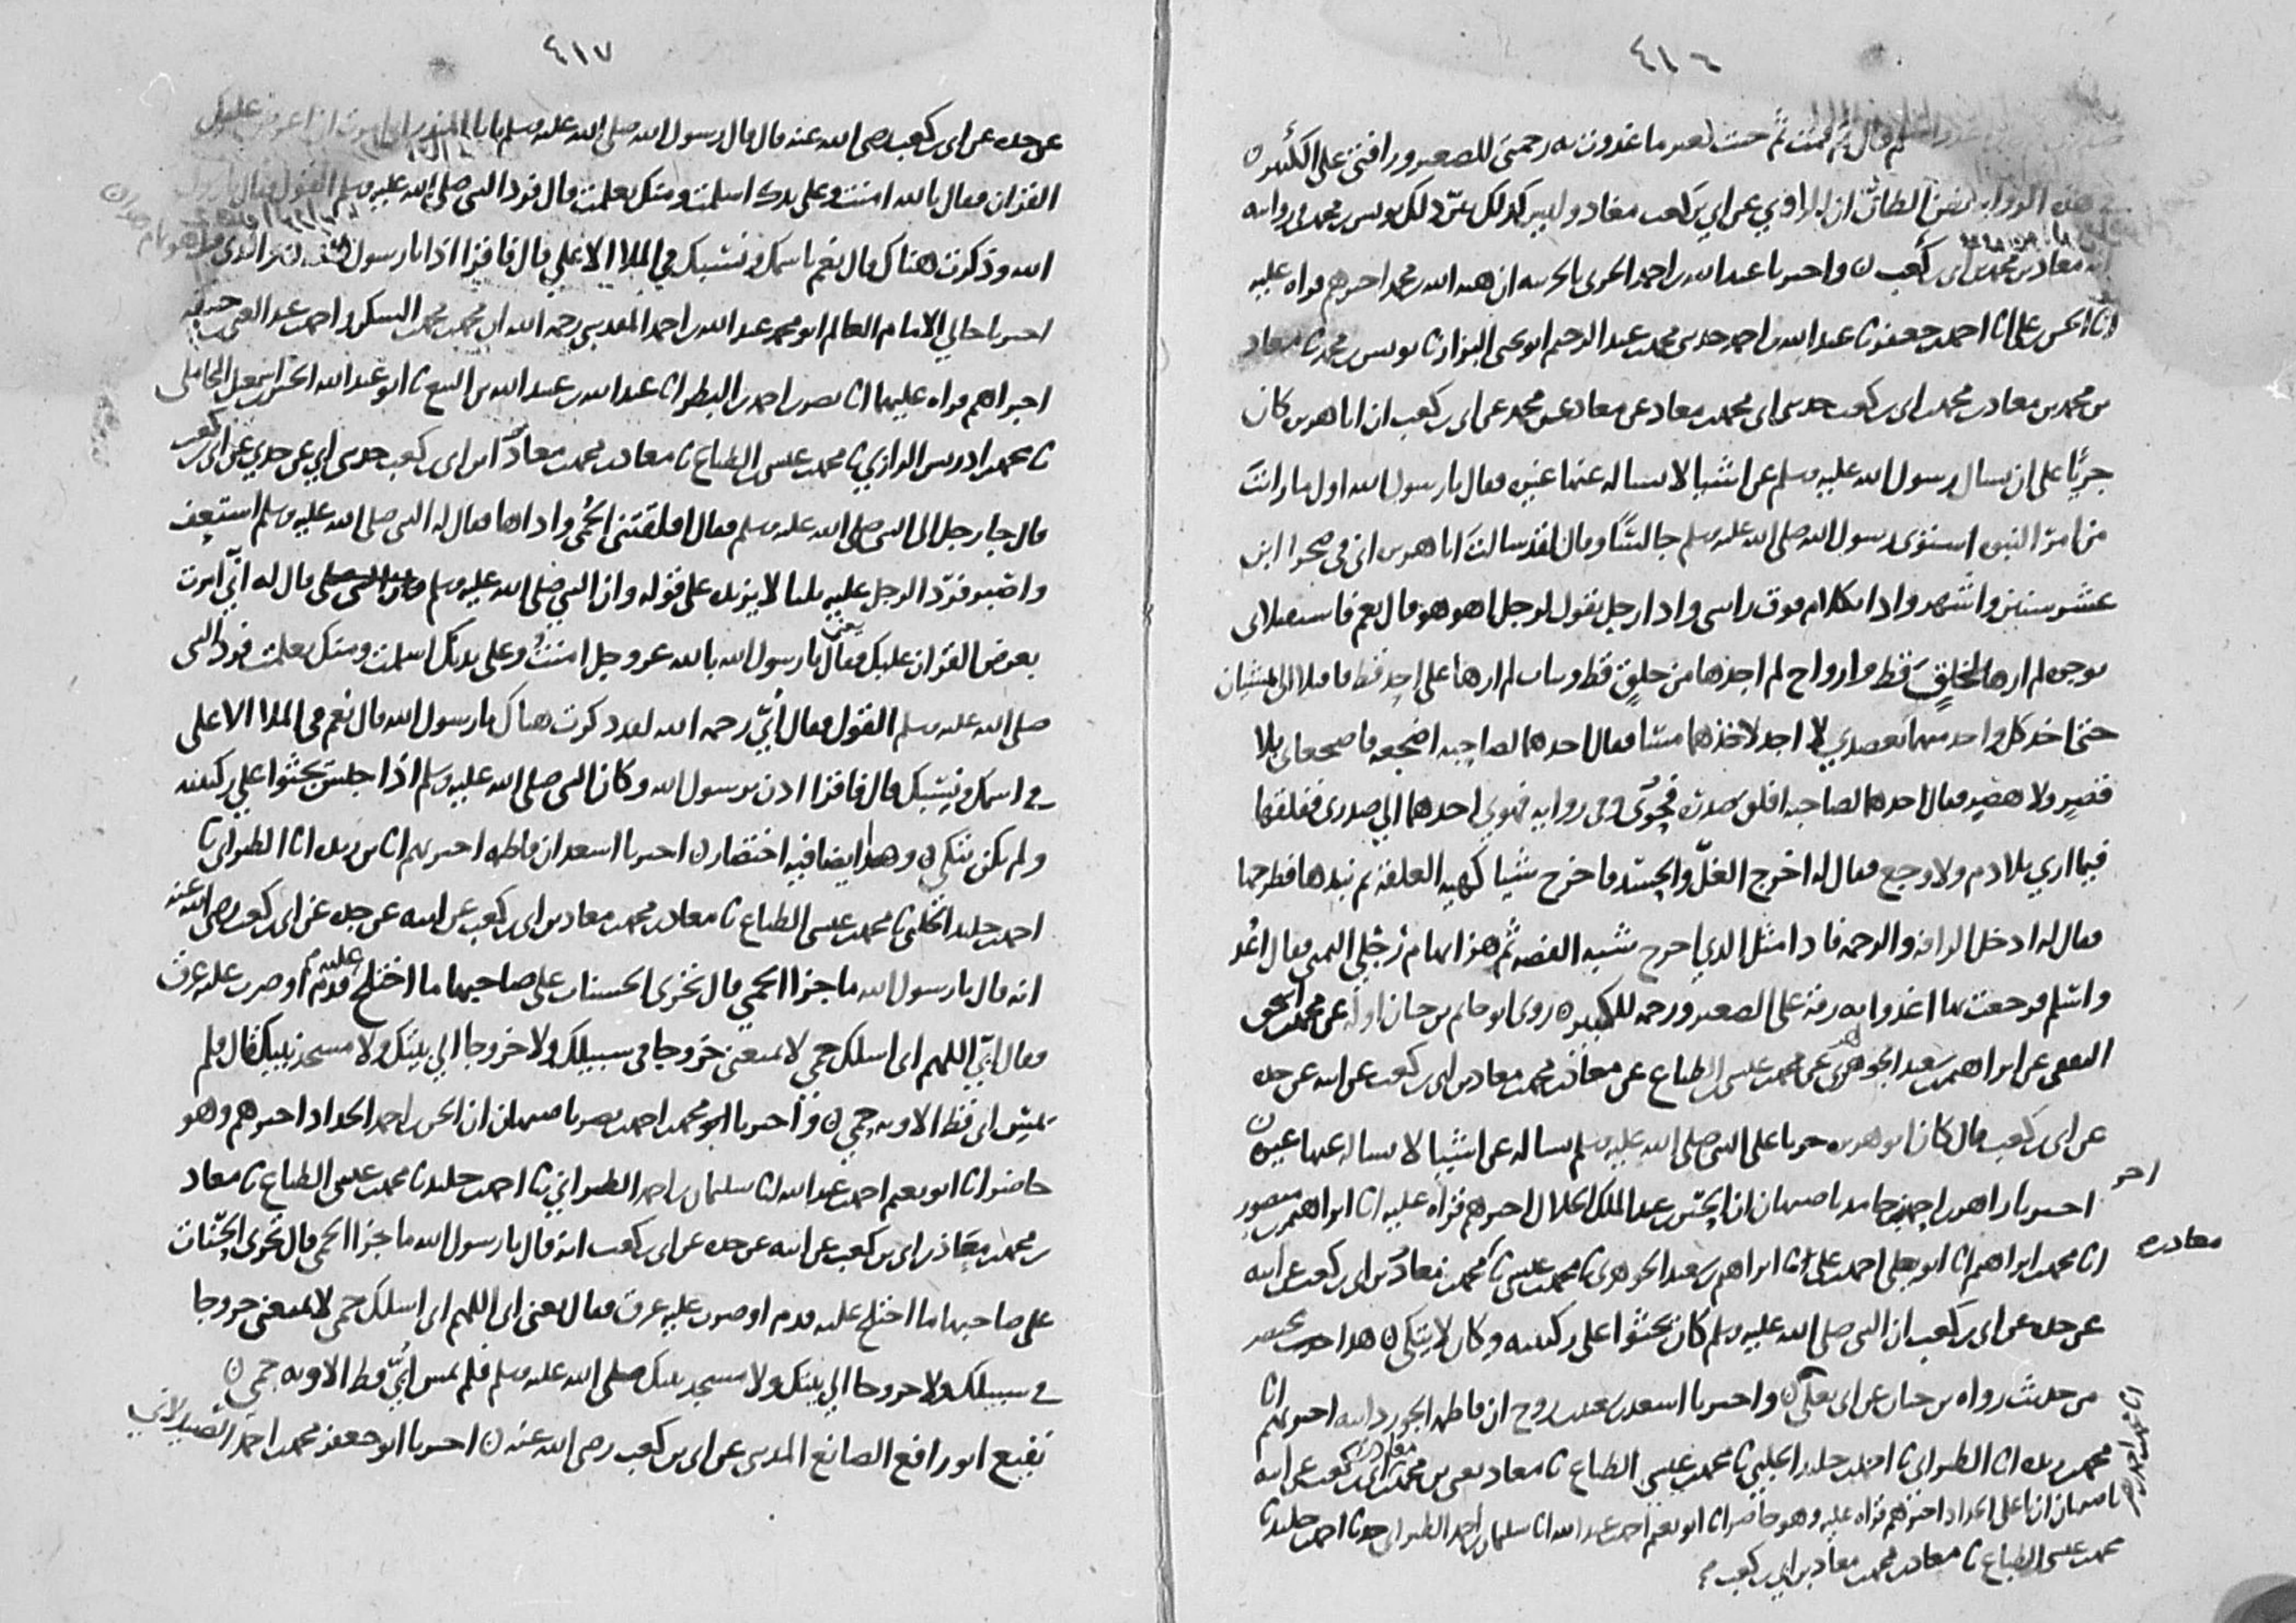 ٤١٦
ثم قال لي قمت ثم حيت بغير ما غدوت به رحمتي للصغير ورافتي على الكبير
هذه الرواية ان الراوي عن ابي بن كعب معاذ وليس كذلك يونس بن محمد في روايته
معاذ بن محمد بن ابي بن كعب واخبرنا عبد الله بن احمد الحربي بالحربية ان هبة الله بن محمد اخبرهم قراه عليه
انا الحسن بن علي انا احمد بن جعفر ثنا عبد الله بن احمد حدثني محمد بن عبد الرحيم ابو يحيى البزاز ثنا يونس بن محمد ثنا معاذ
بن محمد بن معاذ بن محمد بن ابي بن كعب حدثني ابي محمد بن معاذ عن معاذ عن محمد عن ابي بن كعب ان ابا هريرة كان
جريًا على ان يسال رسول الله صلى الله عليه وسلم عن اشيا لا يساله عنها غيره فقال يا رسول الله اول ما رايت
من امر النبوه استوى رسول الله صلى الله عليه وسلم جالسًا وقال لقد سالت ابا هريرة اني في صحرا ابن
عشر سنين واشهر واذا بكلام فوق راسي واذا رجل يقول لرجل اهو هو قال نعم فاستقبلاني
بوجوه لم ارها لخلقٍ قط وارواح لم اجدها من خلقٍ قط وثياب لم ارها على احد قط فاقبلا الي يمشيان
حتى اخذ كل واحد منهما بعضدي لا اجد لاخذهما مسًا فقال احدهما لصاحبه اضجعه فاضجعاني بلا
قصرٍ ولا هصرٍ فقال احدهما لصاحبه افلق صدره فحوى وفي روايه فهوي احدهما الى صدري ففلقها
فيما اري بلا دم ولا وجع فقال له اخرج الغلّ والحسد فاخرج شيا كهيه العلقة ثم نبذها فطرحها
فقال له ادخل الرافه والرحمه فاذا مثل الذي اخرج شبيه الفضه ثم هز ابهام رجلي اليمنى فقال اغد
واسلم فرجعت بها اغدوا به رقة على الصغير ورحمه للكبير روى ابو حاتم بن حبان اوله عن محمد بن اسحق
الثقفي عن ابراهيم بن سعيد الجوهري عن محمد بن عيسى الطباع عن معاذ بن محمد بن معاذ بن ابي بن كعب عن ابيه عن جده
عن ابي بن كعب قال كان ابو هريرة جريا على النبي صلى الله عليه وسلم يساله عن اشيا لا يساله عنها غيره
اخبرنا زاهر بن احمد بن حامد باصبهان ان الحسين بن عبد الملك الخلال اخبرهم قراه عليه انا ابراهيم بن منصور
انا محمد بن ابراهيم انا ابو يعلى احمد بن علي ثنا ابراهيم بن سعيد الجوهري ثنا محمد بن عيسى ثنا محمد بن معاذ بن ابي بن كعب عن ابيه
عن جده عن ابي بن كعب ان النبي صلى الله عليه وسلم كان يجثوا على ركبتيه وكان لا يتكي هذا حديث مختصر
من حديث رواه بن حبان عن ابي يعلى واخبرنا اسعد بن سعيد بن روح ان فاطمه الجوزدانيه اخبرتهم انا
محمد بن ريذه انا الطبراني ثنا احمد بن خليد الحلبي ثنا محمد بن عيسى الطباع ثنا معاذ يعني بن محمد بن معاذ بن ابي بن كعب عن ابيه
باصبهان ان ابا علي الحداد اخبرهم قراه عليه وهو حاضر انا ابو نعيم احمد بن عبد الله انا سليمان بن احمد الطبراني حدثنا احمد بن خليد ثنا
محمد بن عيسى الطباع ثنا معاذ بن محمد بن معاذ بن ابي بن كعب
معاذ بن
٤١٧
عن جده عن ابي بن كعب رضي الله عنه قال قال رسول الله صلى الله عليه وسلم يا ابا المنذر اني امرت ان اعرض عليك
القران فقال بالله امنت وعلى يدك اسلمت ومنك تعلمت قال فرد النبي صلى الله عليه وسلم القول فقال يا رسول
الله وذكرت هناك قال نعم باسمك ونسبك في الملا الاعلي قال فاقرا اذا يا رسول الله
اخبرنا خالي الامام العالم ابو محمد عبد الله بن احمد المقدسي رحمه الله ان محمد بن محمد بن السكن واحمد بن عبد الغني بن حنيفه
اخبراهم قراه عليهما انا نصر بن احمد بن البطر انا عبد الله بن عبيد الله بن البيع ثنا ابو عبد الله الحسين بن اسمعيل المحاملي
ثنا محمد بن ادريس الرازي ثنا محمد بن عيسى الطباع ثنا معاذ بن محمد بن معاذ بن ابي بن كعب حدثني ابي عن جدي عن ابي بن كعب
قال جا رجل الى النبي صلى الله عليه وسلم فقال اقلقتني الحمى واذاها فقال له النبي صلى الله عليه وسلم استعفف
واصبر فرد الرجل عليه ثلثا لا يزيده على قوله وان النبي صلى الله عليه وسلم قال له اني امرت
بعرض القران عليك يعني فقال يا رسول الله بالله عز وجل امنت وعلى يديك اسلمت ومنك تعلمت فرد النبي
صلى الله عليه وسلم القول فقال اُبيّ رحمه الله لقد ذكرت هناك يا رسول الله قال نعم في الملا الاعلى
في اسمك ونسبك قال فاقرا اذن يرسول الله وكان النبي صلى الله عليه وسلم اذا جلس يجثوا على ركبتيه
ولم يكن يتكي وهذا ايضا فيه اختصار اخبرنا اسعد ان فاطمه اخبرتهم انا بن ريذه انا الطبراني ثنا
احمد بن خليد الحلبي ثنا محمد بن عيسى الطباع ثنا معاذ بن محمد بن معاذ بن ابي بن كعب عن ابيه عن جده عن ابي بن كعب رضي الله عنه
انه قال يا رسول الله ما جزا الحمي قال تجري الحسنات على صاحبها ما اختلج عليه قدم او ضرب عليه عرق
فقال ابي اللهم اني اسلك حمي لا تمنعني خروجا في سبيلك ولا خروجا الي بيتك ولا مسجد نبيك قال فلم
يمس ابي قط الا وبه حمي واخبرنا ابو محمد بن احمد بن نصر باصبهان ان الحسن بن احمد الحداد اخبرهم وهو
حاضر انا ابو نعيم احمد بن عبد الله انا سليمان بن احمد الطبراني ثنا احمد بن خليد ثنا محمد بن عيسى الطباع ثنا معاذ
بن محمد بن معاذ بن ابي بن كعب عن ابيه عن جده عن ابي بن كعب انه قال يا رسول الله ما جزا الحمى قال تجري الحسنات
على صاحبها ما اختلج عليه قدم او ضرب عليه عرق فقال يعني ابي اللهم اني اسلك حمى لا تمنعني خروجا
في سبيلك ولا خروجا الي بيتك ولا مسجد نبيك صلى الله عليه وسلم فلم يمس اُبيّ قط الا وبه حمي
نفيع ابو رافع الصائغ المدني عن ابي بن كعب رضي الله عنه اخبرنا ابو جعفر محمد بن احمد الصيدلاني